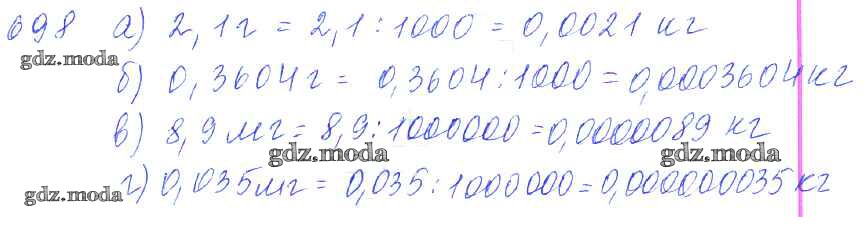 698 а) 2,1г = 2,1:1000 = 0,0021 кг
gdz.moda
б) 0,3604г = 0,3604:1000 = 0,0003604 кг
в) 8,9 мг = 8,9:1000000 = 0,0000089 кг
gdz.moda gdz.moda
г) 0,035мг = 0,035:1000000 = 0,000000035 кг
gdz.moda gdz.moda